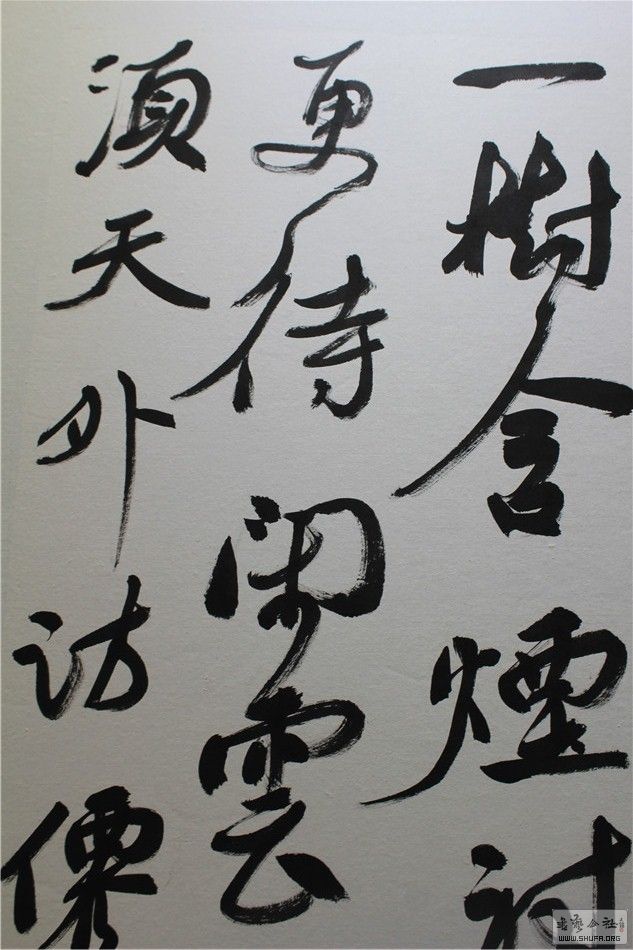 一樹含煙
更待闲雲
須天外訪
公社
WWW.SHUFA.ORG